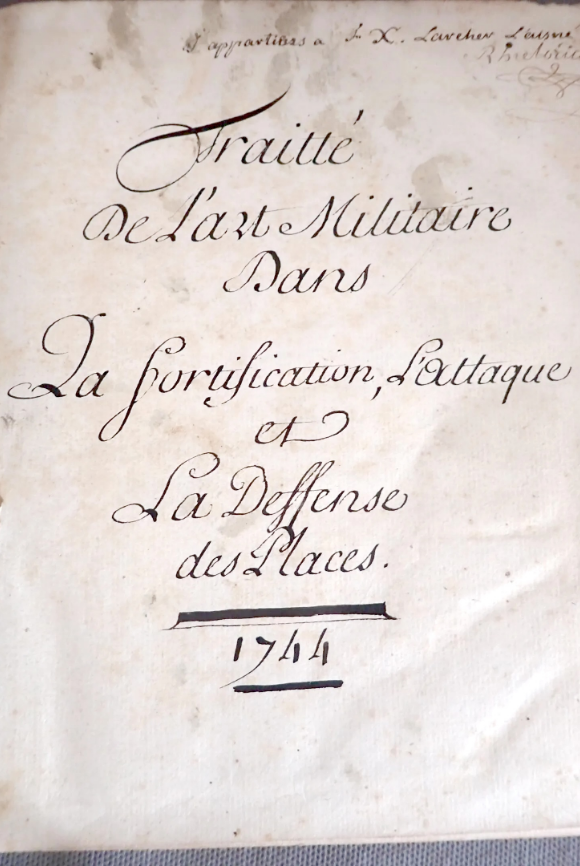 J appartiens a F X. Larcher L'aisné
Rhetoric
Traitté
De L'art Militaire
Dans
La Fortification, L'Attaque
et
La Deffense
des Places.
1744